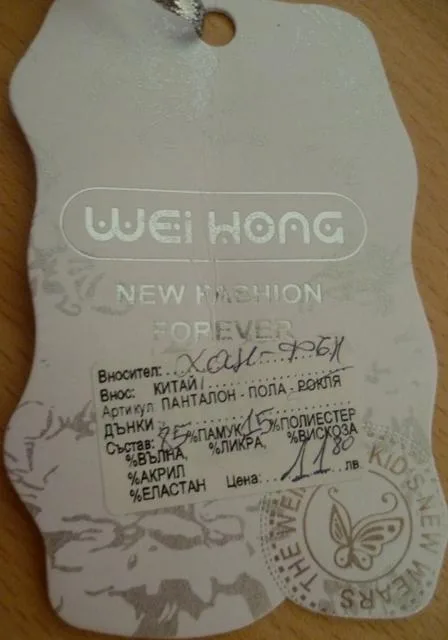 WEI HONG
NEW FASHION
FOREVER
Вносител:...Хан-Фен
Внос: КИТАЙ/
Артикул: ПАНТАЛОН - ПОЛА - РОКЛЯ
ДЪНКИ
Състав: 85%ПАМУК 15%ПОЛИЕСТЕР
%ВЪЛНА, %ЛИКРА, %ВИСКОЗА
%АКРИЛ
%ЕЛАСТАН Цена: 11 80 лв.
THE WEA KID'S NEW WEARS